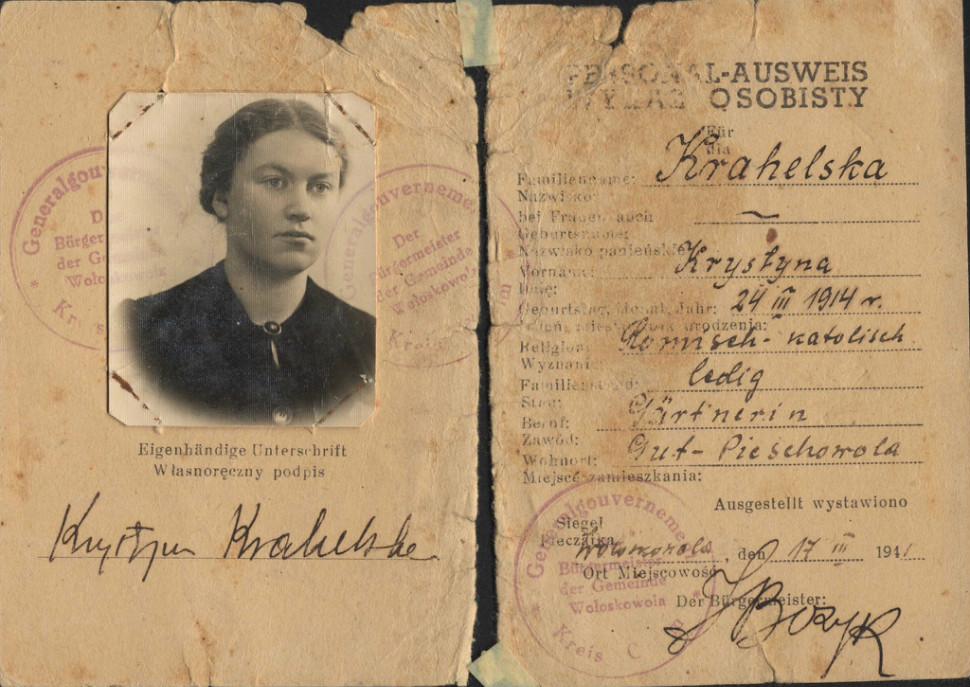 Generalgouvernement
Der
Bürgermeister
der Gemeinde
Wołoskowola
Kreis
Generalgouvernement
Der
Bürgermeister
der Gemeinde
Wołoskowola
Kreis
Eigenhändige Unterschrift
Własnoręczny podpis
Krystyna Krahelska
PERSONAL-AUSWEIS
WYKAZ OSOBISTY
Für
dla
Familienname: Krahelska
Nazwisko:
bei Frauen auch
Geburtsname: ~
Nazwisko panieńskie:
Vorname: Krystyna
Imię:
Geburtstag, Monat, Jahr: 24 III 1914 r.
urodzenia:
Religion: Römisch-katolisch
Wyznanie:
Familienstand: ledig
Stan:
Beruf: Gärtnerin
Zawód:
Wohnort: Gut-Pieschowola
Miejsce zamieszkania:
Ausgestellt wystawiono
Siegel
Pieczątka
den 17 III 1941
Ort Miejscowość
Der Bürgermeister:
Generalgouvernement
Bürgermeister
der Gemeinde
Wołoskowola
Kreis